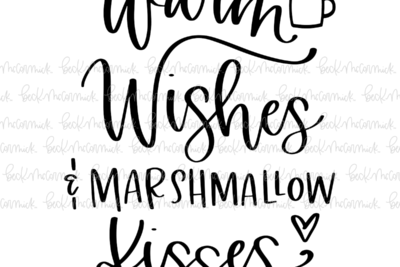 Warm
Wishes
& MARSHMALLOW
Kisses